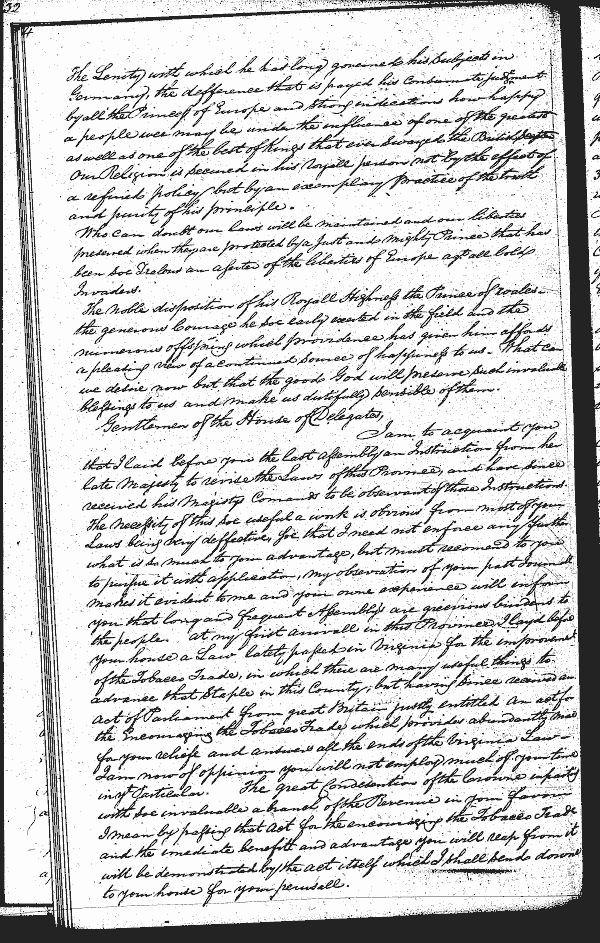 32
4
The Lenity with which he has long governed his Subjects in
Germany, the defference that is payed his Consumate Judgment
by all the Princess of Europe and strong indications how happy
a people wee may be under the influence of one of the greatest
as well as one of the best of Kings that ever Swayed the British Septre
Our Religion is Secured in his Royall person not by the effect of
a refined policy but by an exemplary Practice of the truth
and purity of his principle.
Who can doubt our Laws will be maintained and our liberties
preserved when they are protected by a Just and Mighty Prince that has
been soe Zealous an aserter of the liberties of Europe agt all bold
Invaders.
The Noble disposition of his Royall Highness the Prince of Wales
the generous Courage he soe early exerted in the field and the
numerous offspring which providence has given him affords
a pleasing view of a continued Source of happiness to us. What can
we desire now but that the good God will preserve such invaluable
blessings to us and make us dutifully sensible of them.
Gentlemen of the House of Delegates,
I am to acquaint you
that I laid before you the last assembly an Instruction from her
late Majesty to revise the Laws of this Province, and have since
received his Majestys Comands to be observant of those Instructions.
The necessity of this soe useful a work is obvious from most of your
Laws being very deffective, soe that I need not enforce any further
what is so much to your advantage, but must recomend to you
to pursue it with application, my observation of your past Journalls
makes it evident to me and your owne experience will inform
you that long and frequent Assemblys are greevious burdens to
the people. at my first arrivall in this Province, I layd before
your house a Law lately passed in Virginia for the improvement
of the Tobacco Trade, in which there are many useful things to
advance that Staple in this County, but having since received an
act of Parliament from great Britain justly entitled An act for
the Encouraging the Tobacco Trade which provides abundantly
for your reliefe and answers all the ends of the Virginia Law
I am now of oppinion you will not employ much of your time
in yt Particular. The great Condesention of the Crowne in parting
with soe invaluable a branch of the Revenue in your favour
I mean by passing that Act for the encouraging the Tobacco Trade
and the imediate benefitt and advantage you will reap from it
will be demonstrated by the act itself which I shall send down
to your house for your perusall.